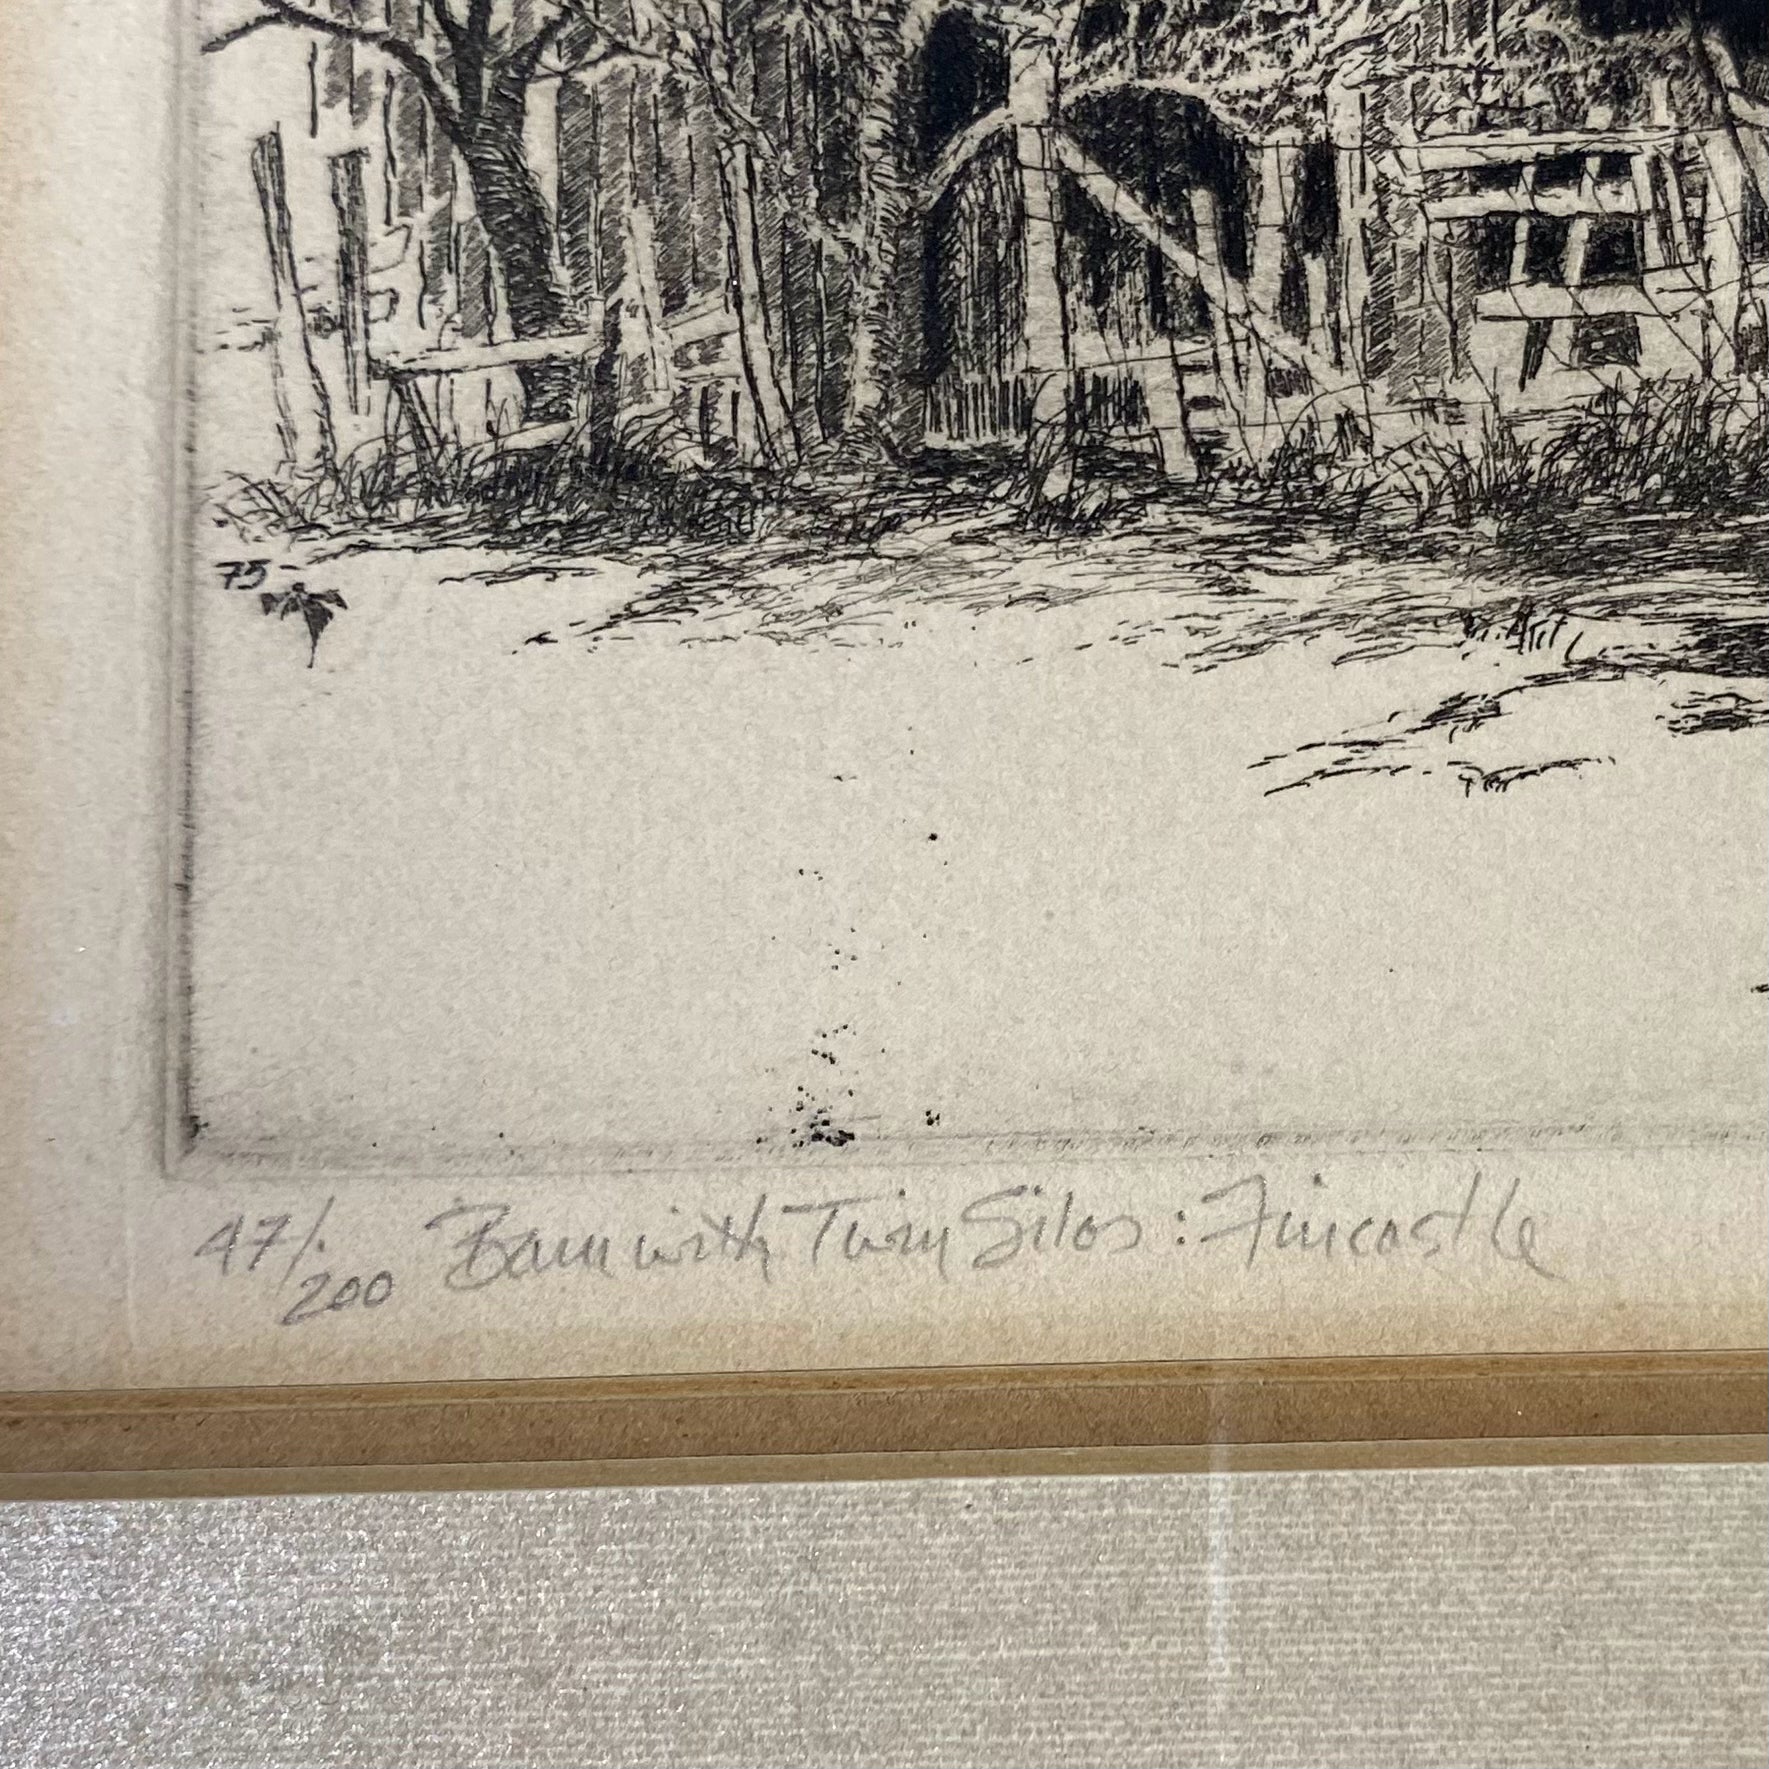 75
47/200 Barn with Twin Silos : Fincastle